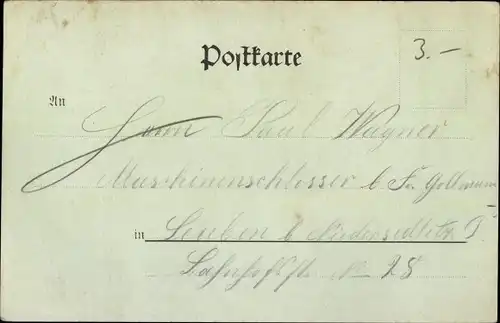 Postkarte
3.-
An
Herrn Paul Wagner
Maschinenschlosser b. Fa. Gollmann
in Leuben b. Niedersedlitz
Bahnhofstr. No 28